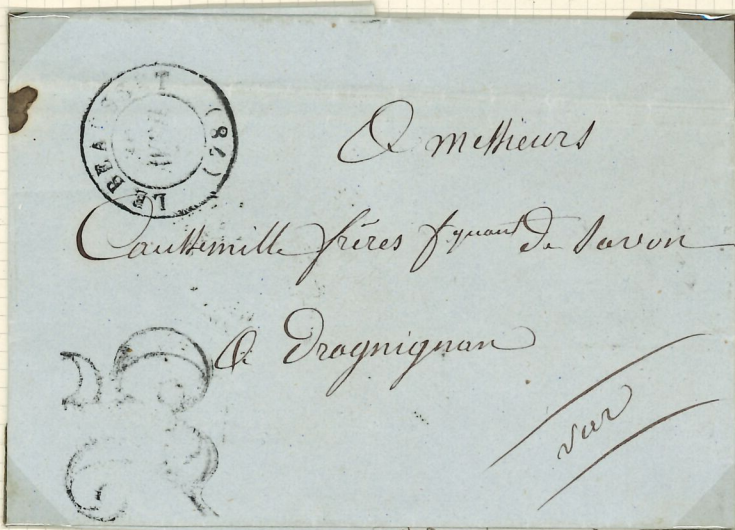 LE BEAUSSET (78)
A messieurs
Caussemille frères fquant De Savon
A Dragnignan
var
25